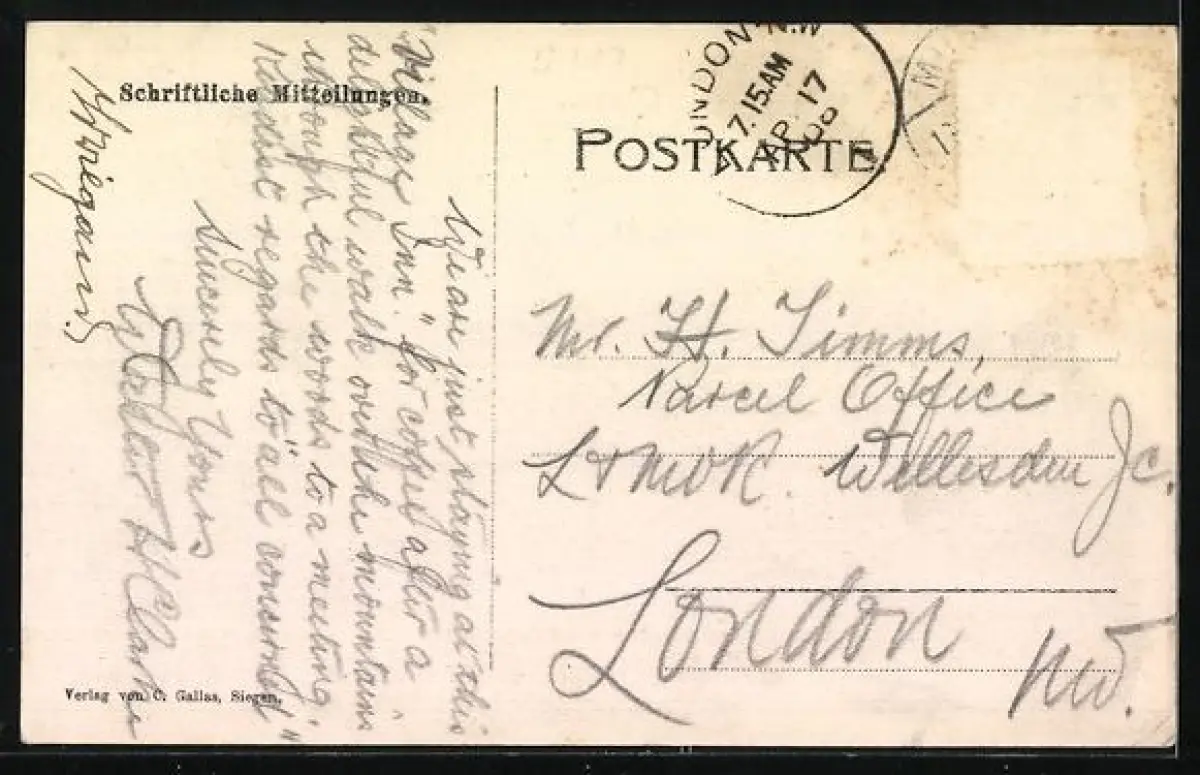 Schriftliche Mitteilungen.
POSTKARTE
LONDON N.W
7.15 AM
AP 17
08
M
We are just staying at this
"Village Inn" for coffee after a
delightful walk over the mountains
through the woods to a meeting.
Kindest regards to "all concerned"
Sincerely Yours
Walter H Clark
Wiegand
Mr. H. Timms,
Parcel Office
L & NWR. Willesden Jc.
London
NW.
Verlag von C. Gallas, Siegen.